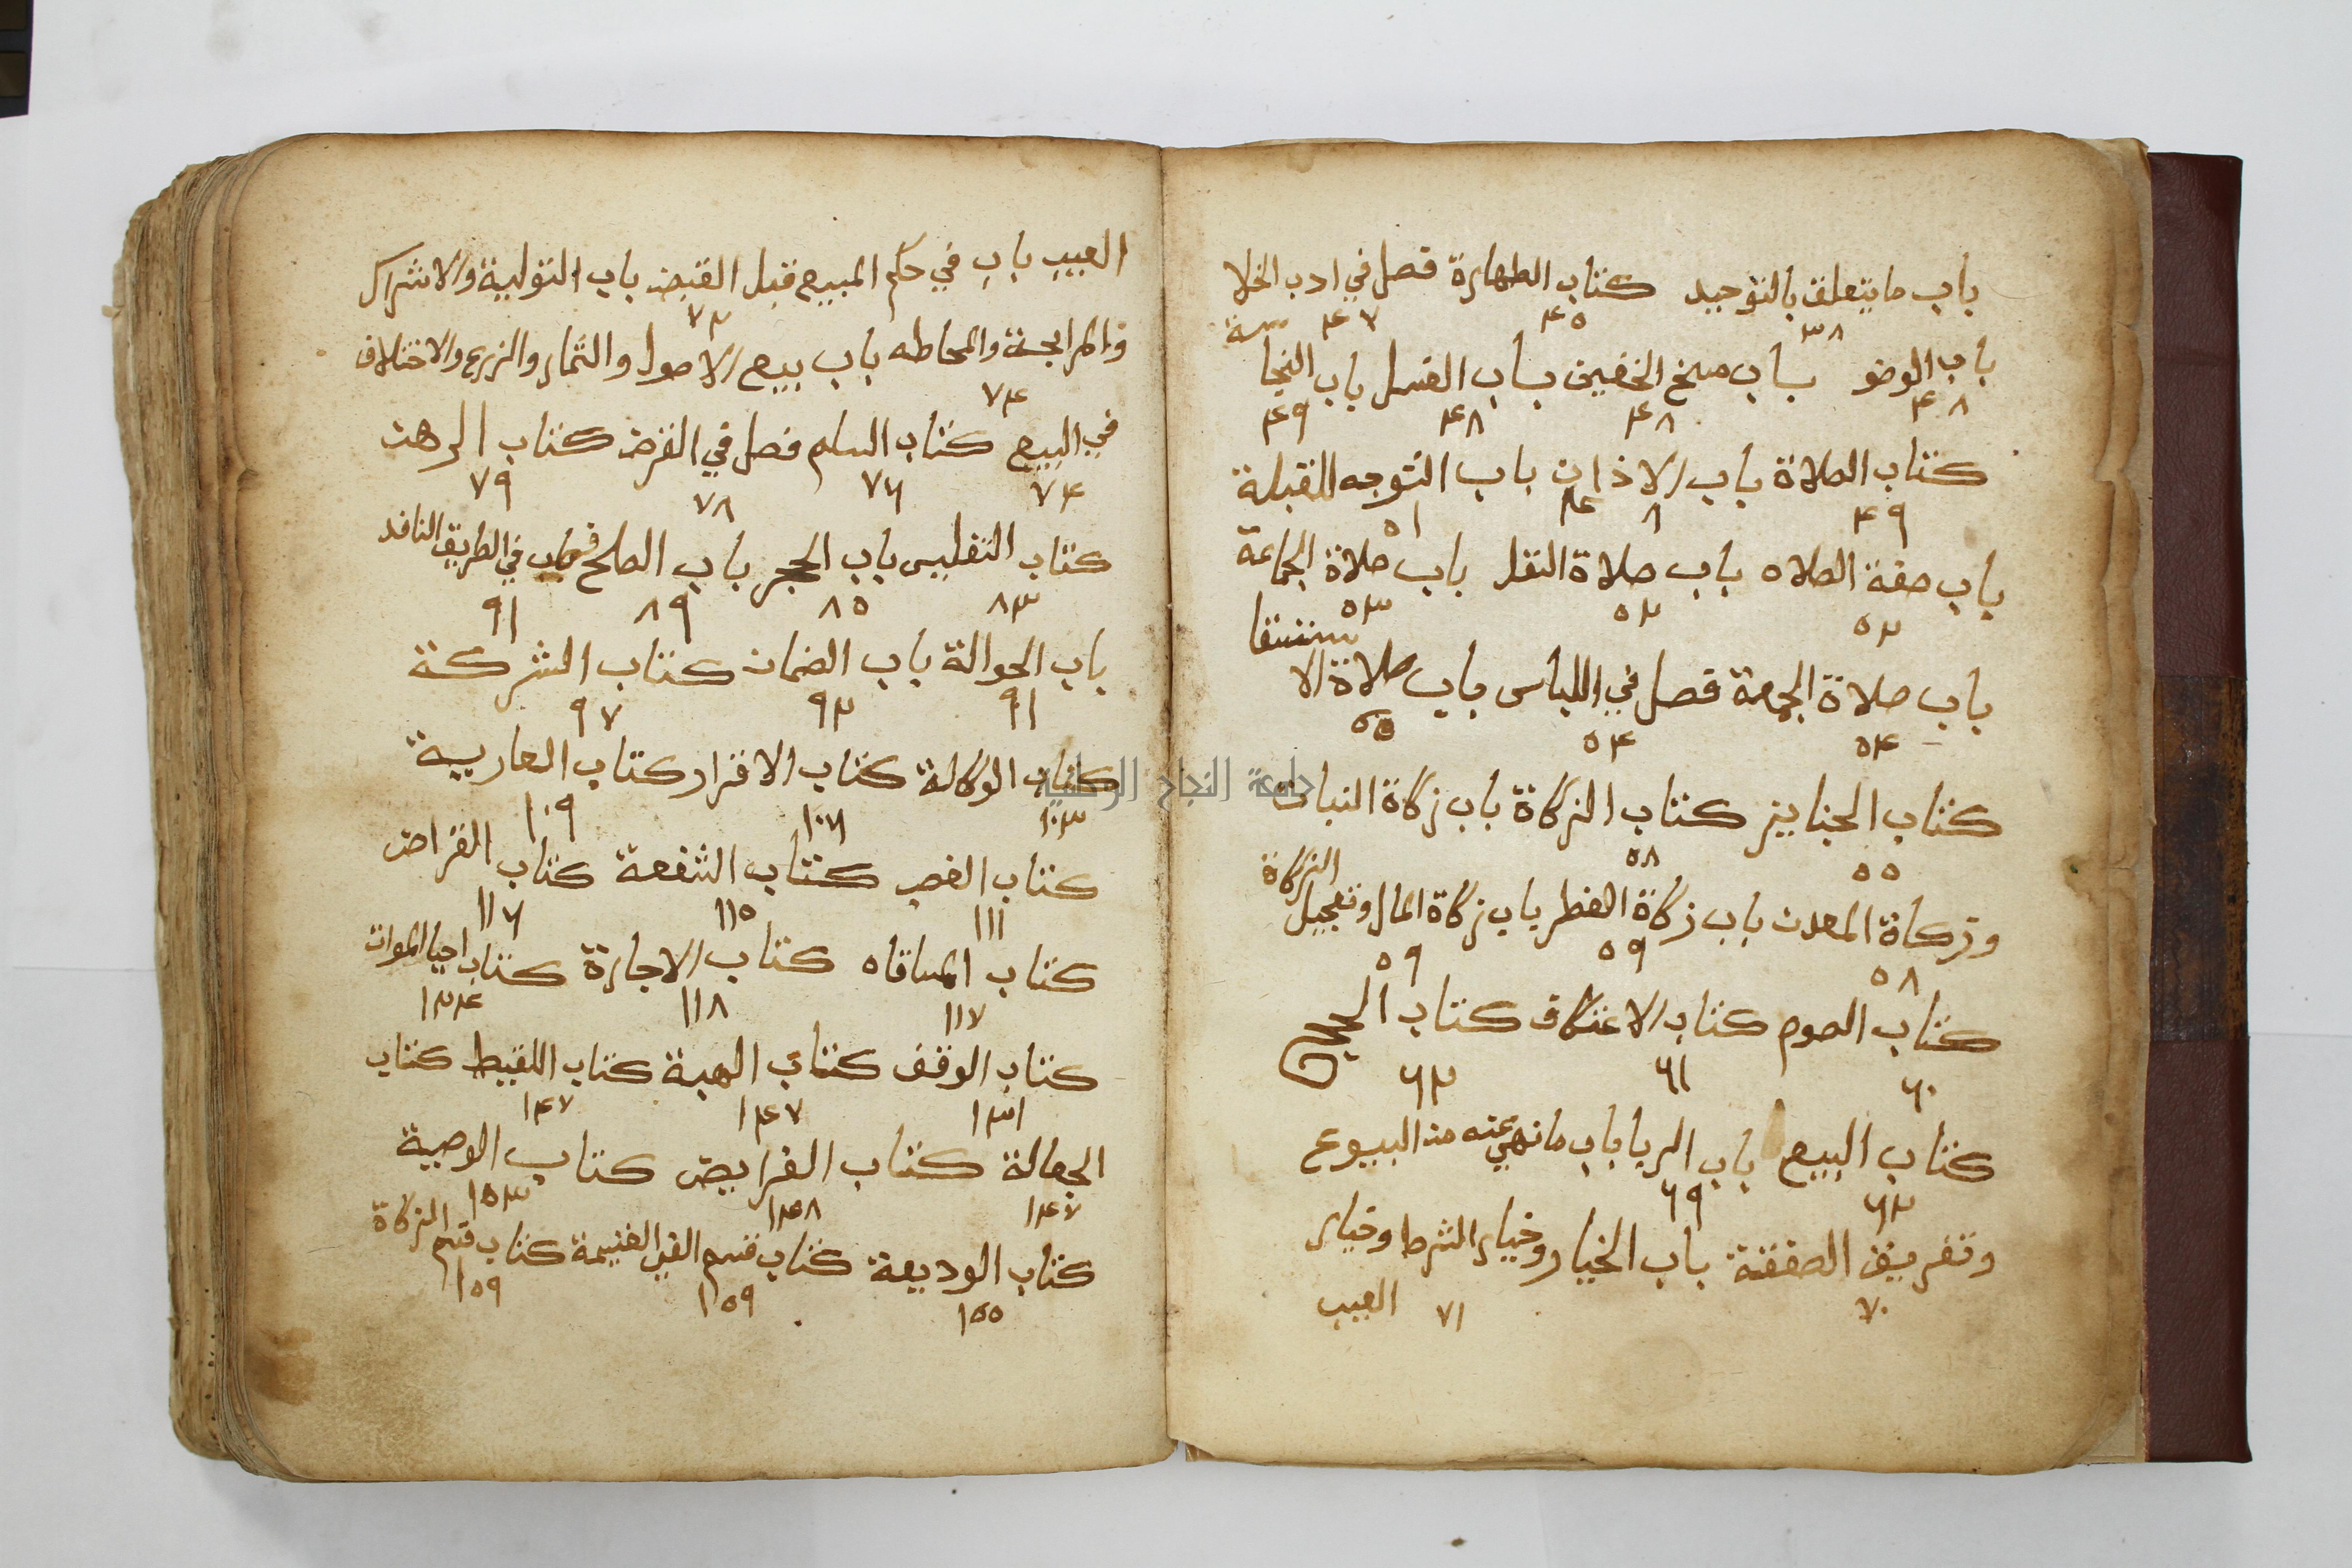 باب ما يتعلق بالتوحيد كتاب الطهارة فصل في ادب الخلا
٣٨ ٤٥ ٤٧
سة
باب الوضو باب مسح الخفين باب الغسل باب النجا
٤٨ ٤٨ ٤٨ ٤٩
كتاب الصلاة باب الاذان باب التوجه للقبلة
٤٩ ٤٨ ٥١
باب صفة الصلاه باب صلاة النفل باب صلاة الجماعة
٥٢ ٥٢ ٥٣
ستسقا
باب صلاة الجمعة فصل في اللباس باب صلاة الا
٥٤ ٥٤ ٥٥
كتاب الجنايز كتاب الزكاة باب زكاة النبات
٥٥ ٥٨
الزكاة
وزكاة المعدن باب زكاة الفطر باب زكاة المال وتعجيل
٥٨ ٥٩ ٥٩
كتاب الصوم كتاب الاعتكاف كتاب الحج
٦٠ ٦١ ٦٢
كتاب البيع باب الربا باب ما نهي عنه من البيوع
٦٢ ٦٩
وتفريق الصفقة باب الخيار وخيار الشرط وخيار
٧٠ ٧١
العيب
العيب باب في حكم المبيع قبل القبض باب التولية والاشراك
٧٢
والمرابحة والمحاطه باب بيع الاصول والثمار والزرع والاختلاف
٧٤
في البيع كتاب السلم فصل في القرض كتاب الرهن
٧٤ ٧٦ ٧٨ ٧٩
كتاب التفليس باب الحجر باب الصلح في الطريق النافد
٨٣ ٨٥ ٨٩ ٩١
باب الحوالة باب الضمان كتاب الشركة
٩١ ٩٢ ٩٧
كتاب الوكالة كتاب الاقرار كتاب العارية
١٠٣ ١٠٦ ١٠٩
كتاب الغصب كتاب الشفعة كتاب القراض
١١١ ١١٥ ١١٦
كتاب المساقاه كتاب الاجارة كتاب احيا الموات
١١٧ ١١٨ ١٢٤
كتاب الوقف كتاب الهبة كتاب اللقيط كتاب
١٣١ ١٤٧ ١٤٧
الجعالة كتاب الفرايض كتاب الوصية
١٤٧ ١٤٨ ١٥٣
كتاب الوديعة كتاب قسم الفي الغنيمة كتاب قسم الزكاة
١٥٥ ١٥٩ ١٥٩
جامعة النجاح الوطنية